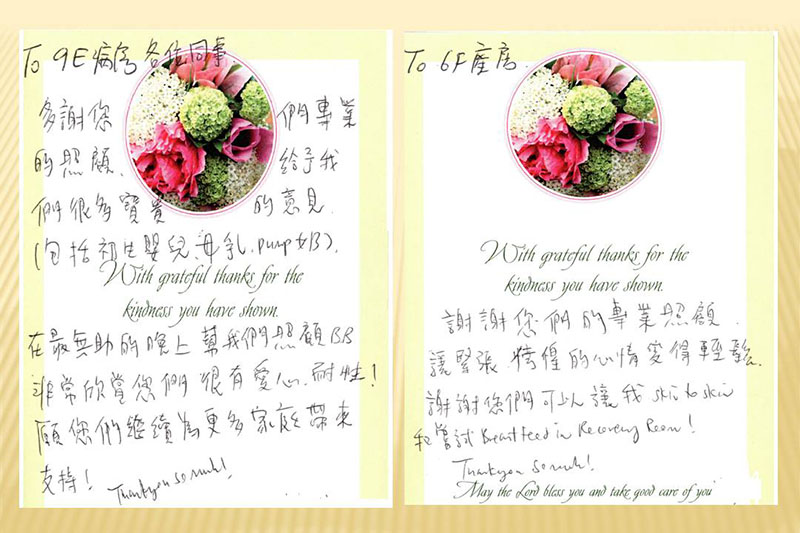 To 9E病房各位同事
多謝您們專業
的照顧、給予我
們很多寶貴的意見
(包括初生嬰兒母乳、pump

With grateful thanks for the
kindness you have shown.
在最無助的晚上幫我們照顧BB
非常欣賞您們很有愛心、耐性!
願您們繼續為更多家庭帶來
支持!
Thank you so much!
To 6F產房
With grateful thanks for the
kindness you have shown.
謝謝您們的專業照顧、
讓緊張徬徨的心情變得輕鬆、
謝謝您們可以讓我 skin to skin
和嘗試 Breastfeed in Recovery Room!
Thank you so much!
May the Lord bless you and take good care of you